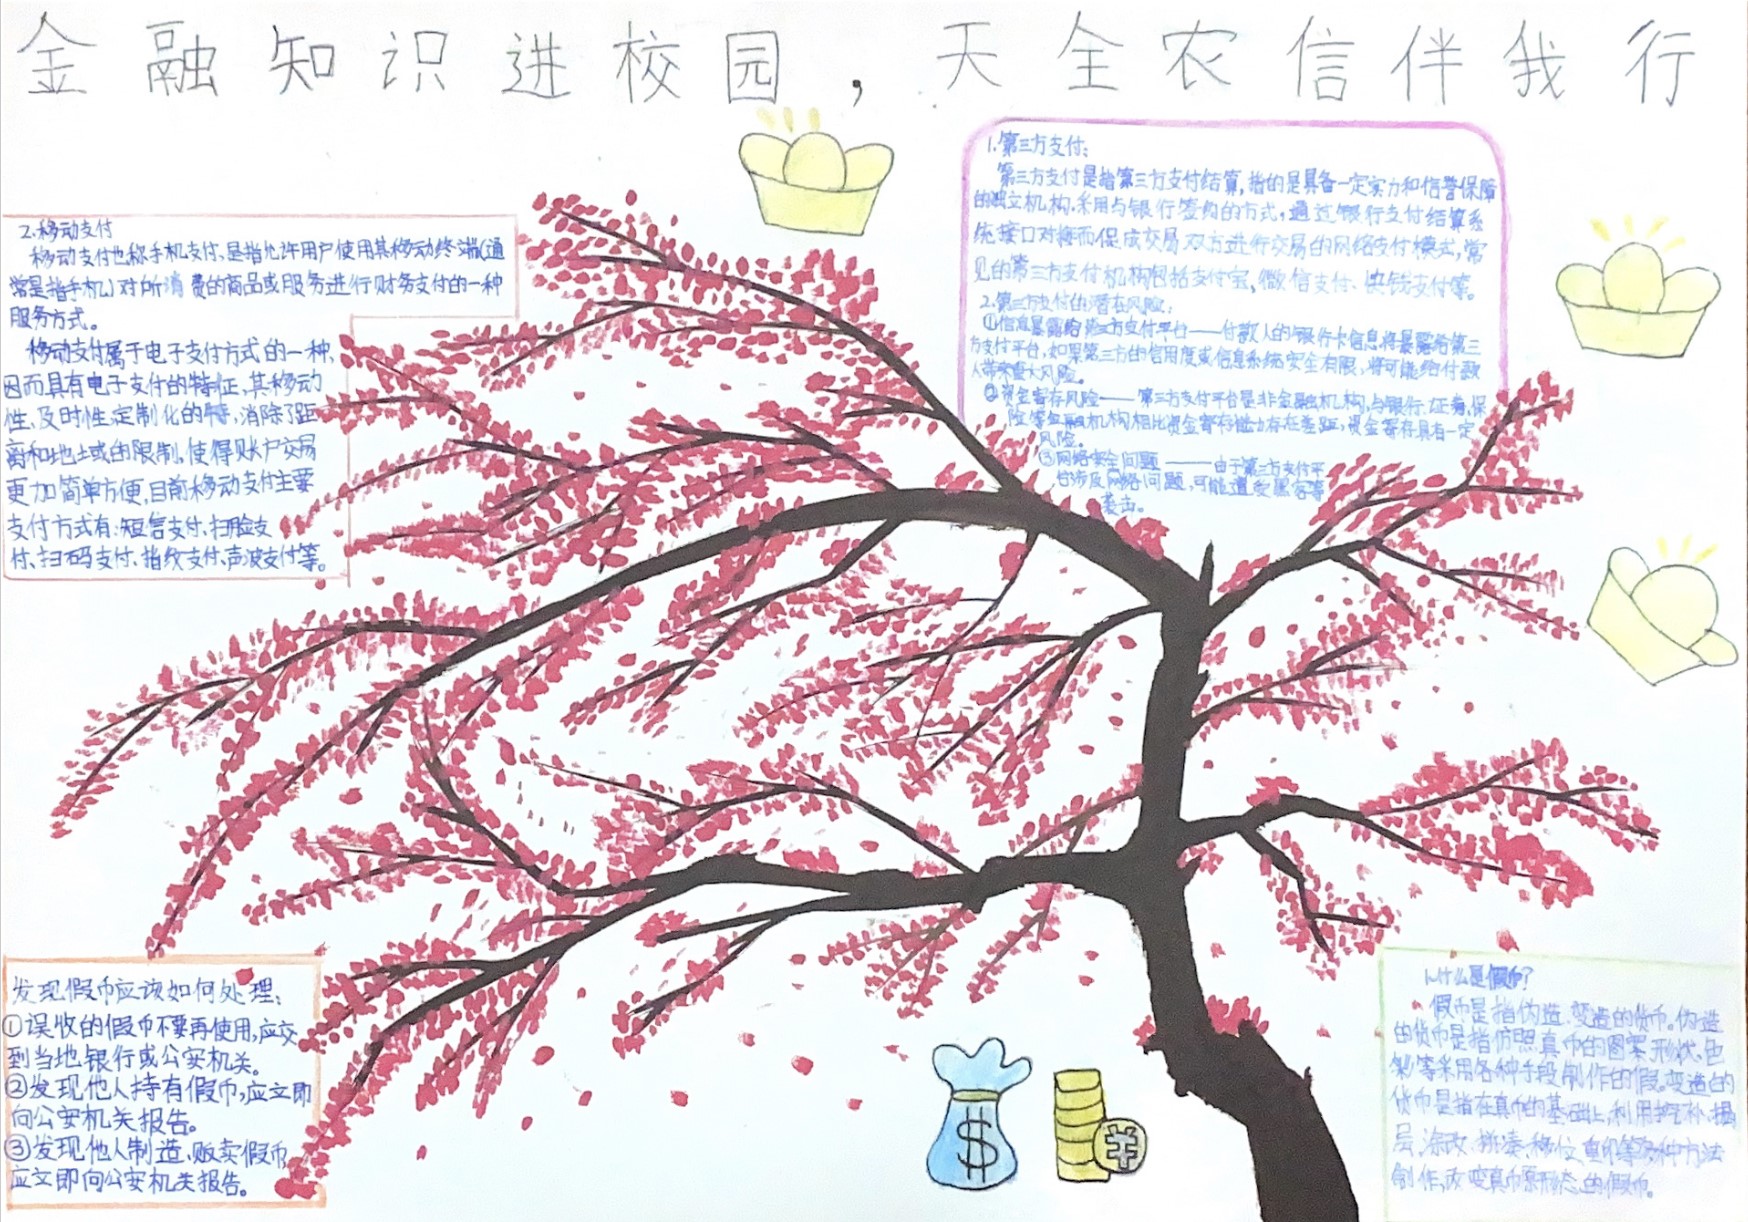 金融知识进校园，天全农信伴我行
1.第三方支付:
第三方支付是指第三方支付结算,指的是具备一定实力和信誉保障
的独立机构.采用与银行签约的方式,通过银行支付结算系
统接口对接而促成交易双方进行交易的网络支付模式,常
见的第三方支付机构包括支付宝,微信支付、快钱支付等。
2.第三方支付的潜在风险:
①信息暴露给第三方支付平台——付款人的银行卡信息将暴露给第三
方支付平台,如果第三方的信用度或信息系统安全有限,将可能给付款
人带来重大风险。
②资金寄存风险——第三方支付平台是非金融机构,与银行.证券,保
险等金融机构相比资金寄存能力存在差距,资金寄存具有一定
风险。
③网络安全问题——由于第三方支付平
台涉及网络问题,可能遭受黑客等
袭击。
2.移动支付
移动支付也称手机支付、是指允许用户使用其移动终端(通
常是指手机)对所消费的商品或服务进行财务支付的一种
服务方式。
移动支付属于电子支付方式的一种,
因而具有电子支付的特征,其移动
性,及时性,定制化的特,消除了距
离和地域的限制,使得账户交易
更加简单方便,目前移动支付主要
支付方式有:短信支付、扫脸支
付、扫码支付、指纹支付、声波支付等。
发现假币应该如何处理:
①误收的假币不要再使用,应交
到当地银行或公安机关。
②发现他人持有假币,应立即
向公安机关报告。
③发现他人制造、贩卖假币
应立即向公安机关报告。
1.什么是假币?
假币是指伪造、变造的货币。伪造
的货币是指仿照真币的图案、形状、色
彩等采用各种手段制作的假。变造的
货币是指在真币的基础上,利用挖补、揭
层、涂改、拼凑、移位、重印等多种方法
制作,改变真币原形态的假币。
$
¥